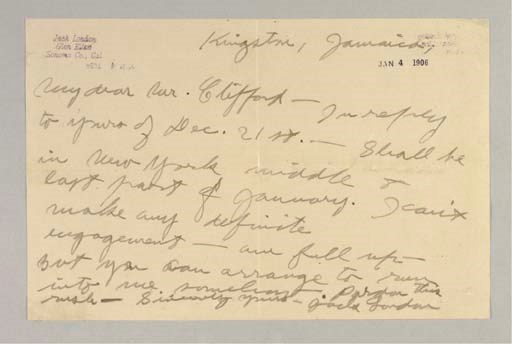 Jack London
Glen Ellen
Sonoma Co., Cal.
Kingston, Jamaica,
JAN 4 1906
My dear Mr. Clifford – In reply
to yours of Dec. 21st. – Shall be
in New York middle &
last part of January. I can't
make any definite
engagement – am full up –
But you can arrange to run
into me somehow. Pardon this
rush – Sincerely yours – Jack London